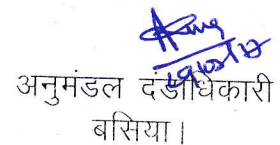 अनुमंडल दंडाधिकारी
बसिया।